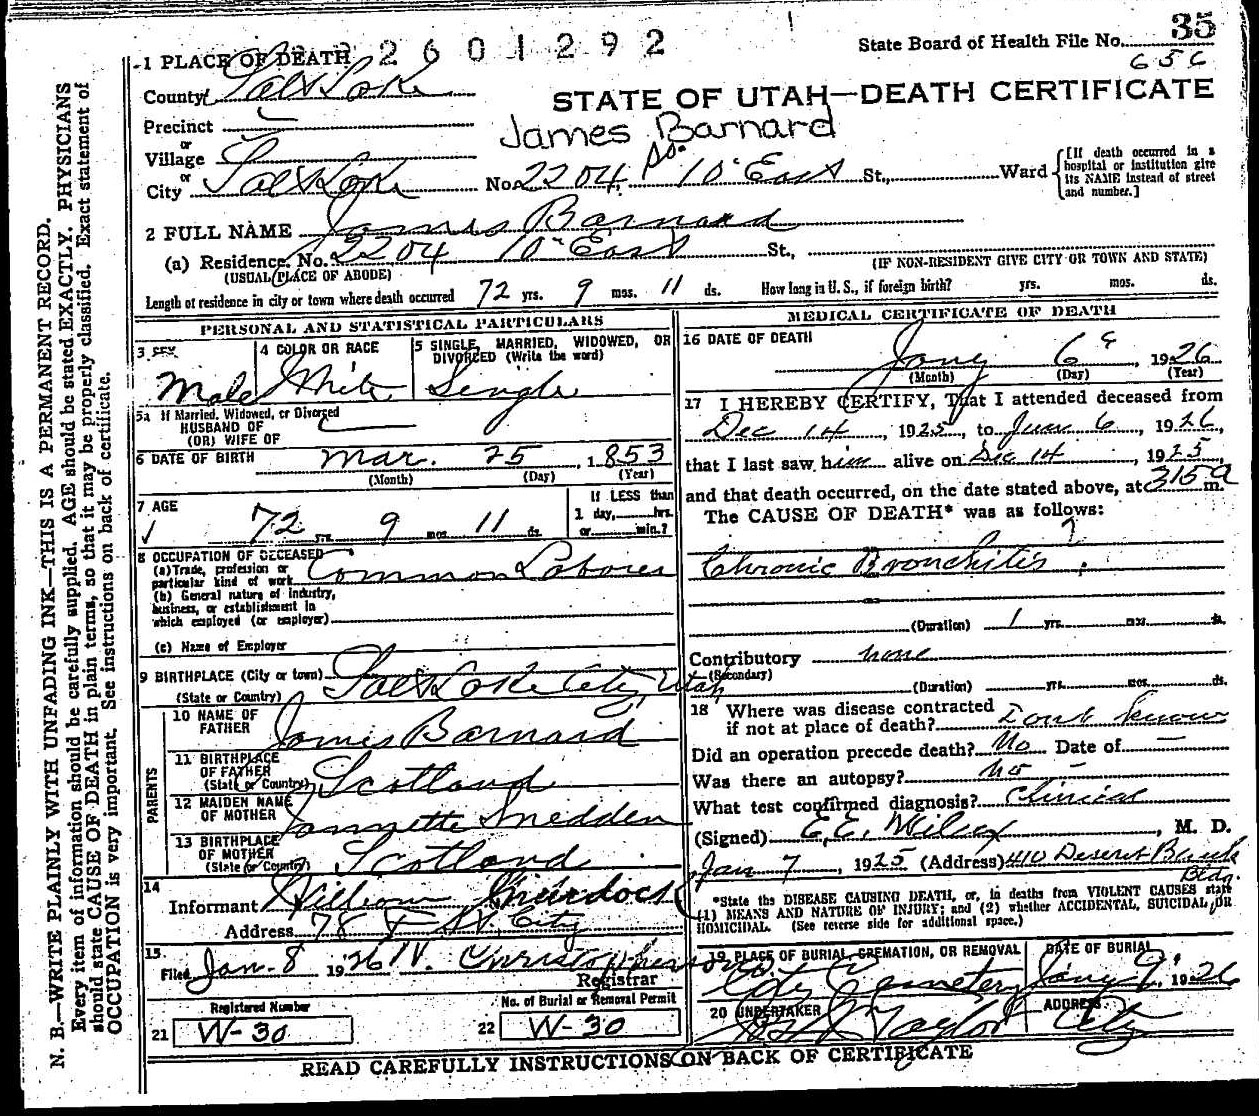 2601292
State Board of Health File No. 35
656
1 PLACE OF DEATH
County Salt Lake
STATE OF UTAH—DEATH CERTIFICATE
Precinct
James Barnard
or
Village
or
City Salt Lake No. 2204 So. 10" East St., Ward
[If death occurred in a hospital or institution give its NAME instead of street and number.]
2 FULL NAME James Barnard
(a) Residence, No. 2204 10" East St.,
(USUAL PLACE OF ABODE)
(IF NON-RESIDENT GIVE CITY OR TOWN AND STATE)
Length of residence in city or town where death occurred 72 yrs. 9 mos. 11 ds. How long in U. S., if foreign birth? yrs. mos. ds.
PERSONAL AND STATISTICAL PARTICULARS
3 SEX
Male
4 COLOR OR RACE
White
5 SINGLE, MARRIED, WIDOWED, OR
DIVORCED (Write the word)
Single
5a If Married, Widowed, or Divorced
HUSBAND OF
(OR) WIFE OF
6 DATE OF BIRTH Mar. 25, 1853
(Month) (Day) (Year)
7 AGE
72 yrs. 9 mos. 11 ds.
If LESS than
1 day, hrs.
or min.?
8 OCCUPATION OF DECEASED
(a) Trade, profession or
particular kind of work Common Laborer
(b) General nature of industry,
business, or establishment in
which employed (or employer)
(c) Name of Employer
9 BIRTHPLACE (City or town) Salt Lake City, Utah
(State or Country)
PARENTS
10 NAME OF
FATHER James Barnard
11 BIRTHPLACE
OF FATHER
(State or Country) Scotland
12 MAIDEN NAME
OF MOTHER Jannette Snedden
13 BIRTHPLACE
OF MOTHER
(State or Country) Scotland
14
Informant William Murdock
Address 78 F St. City
15
Filed Jan. 8 1926 W. Christopherson
Registrar
Registered Number
21 W-30
No. of Burial or Removal Permit
22 W-30
MEDICAL CERTIFICATE OF DEATH
16 DATE OF DEATH
Jany 6", 1926
(Month) (Day) (Year)
17 I HEREBY CERTIFY, That I attended deceased from
Dec 14, 1925, to Jan 6, 1926,
that I last saw him alive on Dec 14, 1925,
and that death occurred, on the date stated above, at 315 a m.
The CAUSE OF DEATH* was as follows:
?
Chronic Bronchitis.
(Duration) 1 yrs. mos. ds.
Contributory none
(Secondary)
(Duration) yrs. mos. ds.
18 Where was disease contracted
if not at place of death? Dont know
Did an operation precede death? No Date of —
Was there an autopsy? No —
What test confirmed diagnosis? Clinical
(Signed) E.E. Wilcox, M. D.
Jan 7 1925 (Address) 410 Deseret Bank
Bldg.
*State the DISEASE CAUSING DEATH, or, in deaths from VIOLENT CAUSES state
(1) MEANS AND NATURE OF INJURY; and (2) whether ACCIDENTAL, SUICIDAL OR
HOMICIDAL. (See reverse side for additional space.)
19 PLACE OF BURIAL, CREMATION, OR REMOVAL
City Cemetery
DATE OF BURIAL
Jany 9" 1926
20 UNDERTAKER
Taylor
ADDRESS
City
READ CAREFULLY INSTRUCTIONS ON BACK OF CERTIFICATE
N. B.—WRITE PLAINLY WITH UNFADING INK—THIS IS A PERMANENT RECORD.
Every item of information should be carefully supplied. AGE should be stated EXACTLY. PHYSICIANS
should state CAUSE OF DEATH in plain terms, so that it may be properly classified. Exact statement of
OCCUPATION is very important. See instructions on back of certificate.